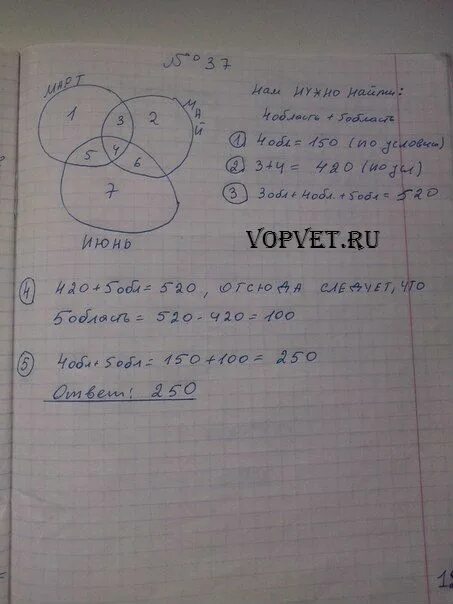 № 37
МАРТ
МАЙ
1
3
2
5
4
6
7
ИЮНЬ
Нам нужно найти:
4область + 5область
① 4обл = 150 (по условию)
② 3+4 = 420 (по усл)
③ 3обл+4обл+5обл = 520
VOPVET.RU
④ 420+5обл = 520, отсюда следует, что
5область = 520-420=100
⑤ 4обл+5обл = 150+100= 250
Ответ: 250